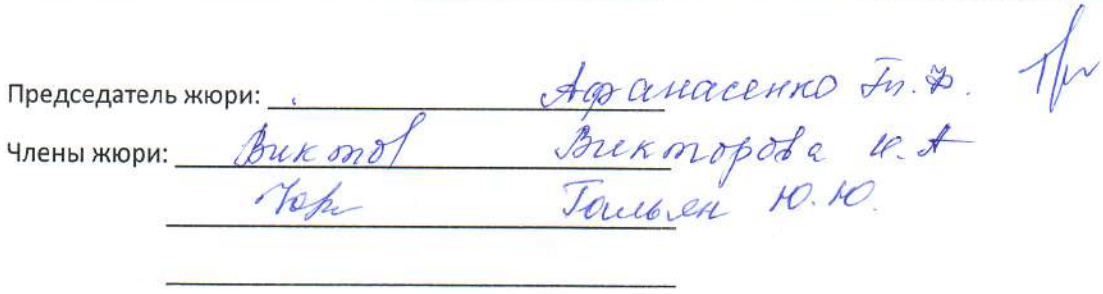 Председатель жюри: Афанасенко Гл. Ф.
Члены жюри: Виктов Викторова И. А
Гальян Ю. Ю.